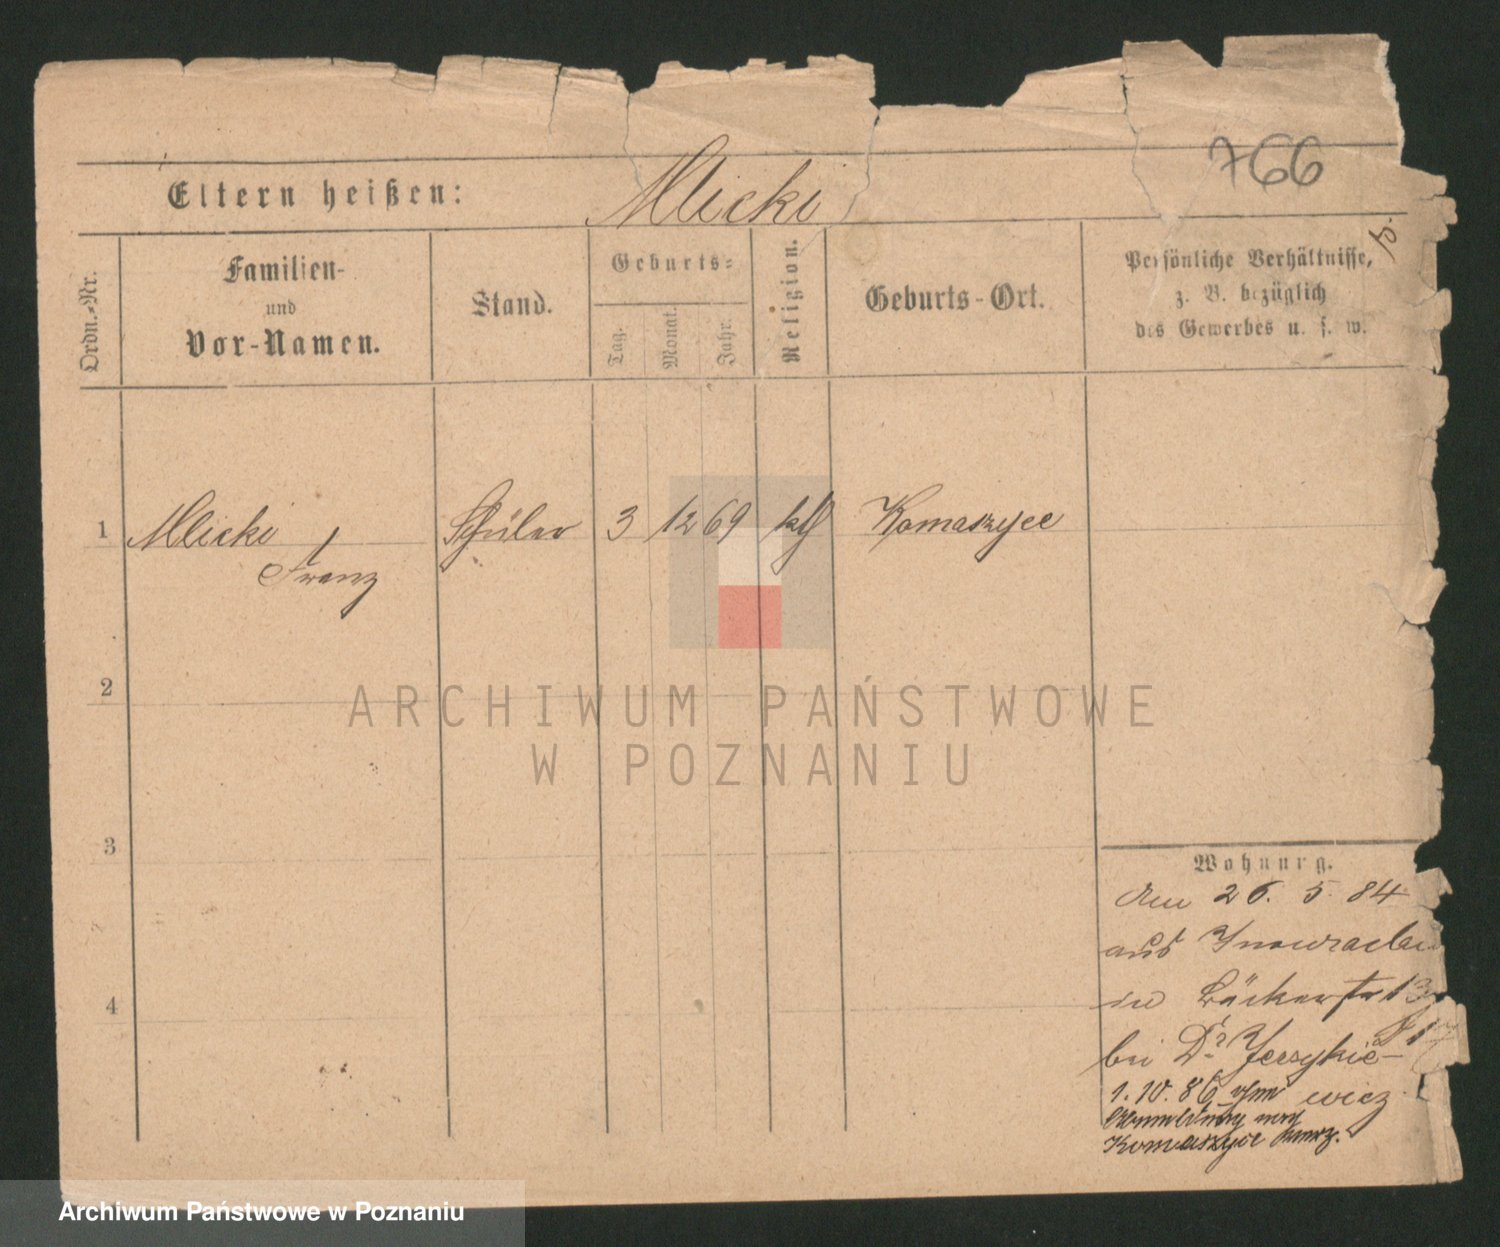 766
Eltern heißen: Mlicki
Ordn.-Nr.
Familien-
und
Vor-Namen.
Stand.
Geburts-
Tag.
Monat.
Jahr.
Religion.
Geburts-Ort.
Persönliche Verhältnisse,
z. B. bezüglich
des Gewerbes u. s. w.
1 Mlicki Schüler 3 12 69 kth Komaszyce
Franz
2
3
4
Wohnung.
Am 26. 5. 84
aus Inowraclaw
in Bäckerstr 13
bei Dr. Jerzykie-
wicz
1. 10. 86
Komaszyce
ARCHIWUM PAŃSTWOWE
W POZNANIU
Archiwum Państwowe w Poznaniu